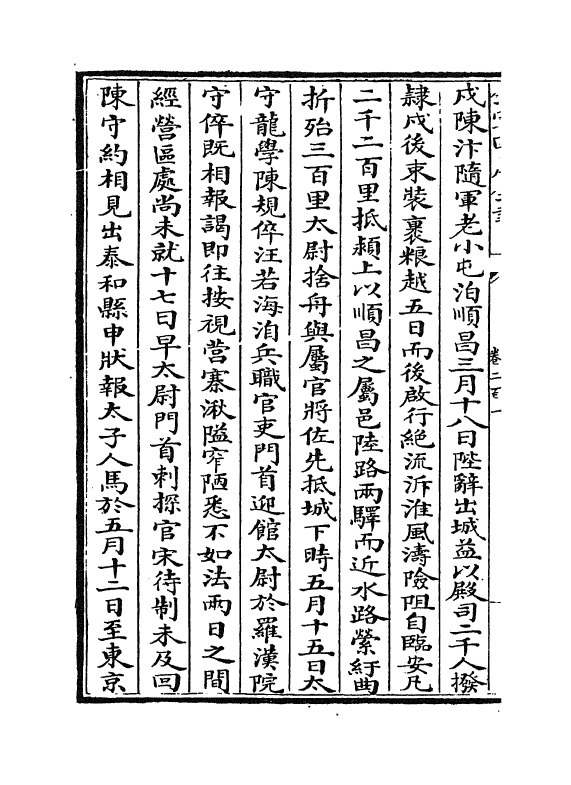 卷二百一
戍陳汴隨軍老小屯泊順昌三月十八日陛辭出城益以殿司二千人撥
隸戍後束裝裹粮越五日而後啟行絶流泝淮風濤險阻自臨安凡
二千二百里抵潁上以順昌之屬邑陸路兩驛而近水路縈紆曲
折殆三百里太尉捨舟與屬官將佐先抵城下時五月十五日太
守龍學陳規倅汪若海洎兵職官吏門首迎館太尉於羅漢院
守倅既相報謁即往按視營寨湫隘窄陋悉不如法兩日之間
經營區處尚未就十七日早太尉門首刺探官宋待制未及回
陳守約相見出泰和縣申狀報太子人馬於五月十二日至東京